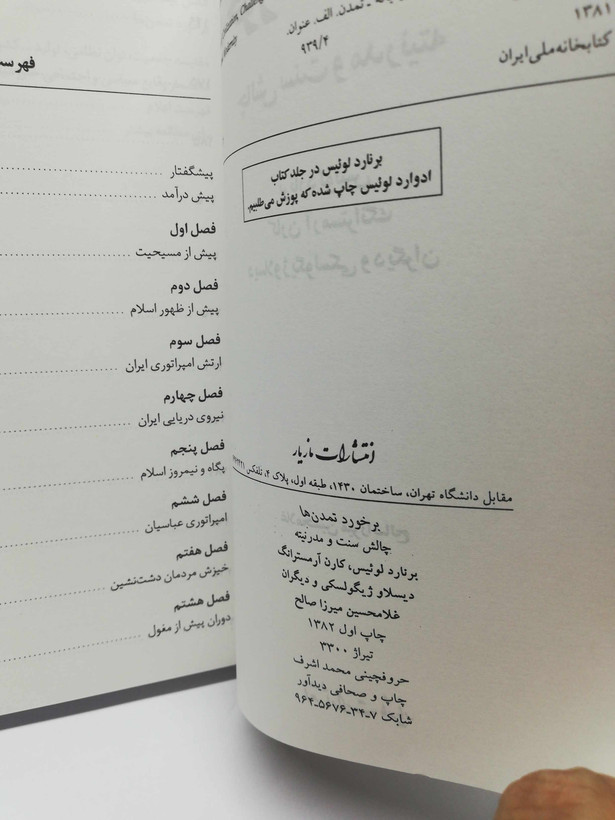 تمدن. الف. عنوان.
۹۳۹/۴
۱۳۸۱
کتابخانه ملی ایران
برنارد لوئیس در جلد کتاب
ادوارد لوئیس چاپ شده که پوزش می‌طلبیم.
انتشارات مازیار
مقابل دانشگاه تهران، ساختمان ۱۴۳۰، طبقه اول، پلاک ۴، تلفکس
برخورد تمدن‌ها
چالش سنت و مدرنیته
برنارد لوئیس، کارن آرمسترانگ
دیسلاو ژیگولسکی و دیگران
غلامحسین میرزا صالح
چاپ اول ۱۳۸۲
تیراژ ۳۳۰۰
حروفچینی محمد اشرف
چاپ و صحافی دیدآور
شابک ۷-۳۴-۵۶۷۶-۹۶۴
فهرست
پیشگفتار
پیش درآمد
فصل اول
پیش از مسیحیت
فصل دوم
پیش از ظهور اسلام
فصل سوم
ارتش امپراتوری ایران
فصل چهارم
نیروی دریایی ایران
فصل پنجم
پگاه و نیمروز اسلام
فصل ششم
امپراتوری عباسیان
فصل هفتم
خیزش مردمان دشت‌نشین
فصل هشتم
دوران پیش از مغول